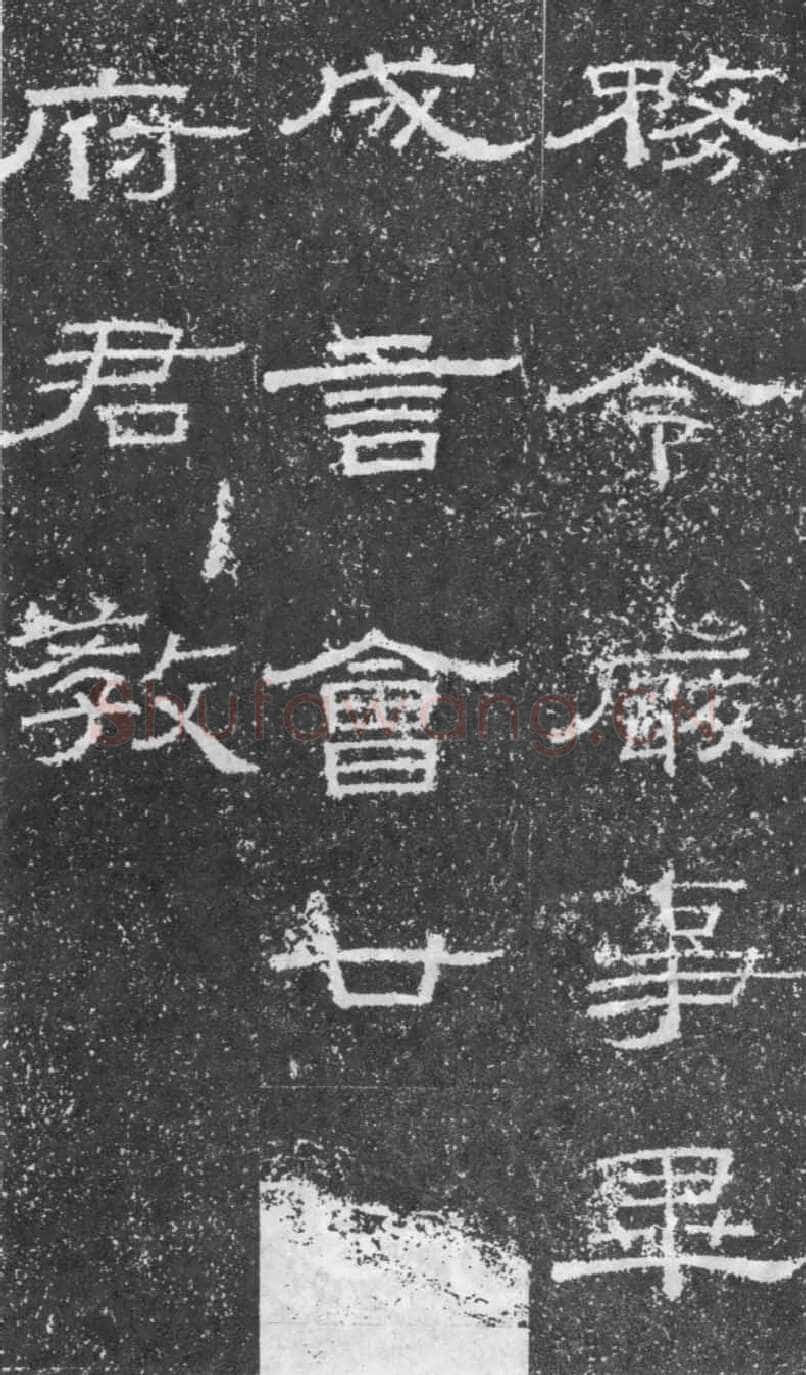 務令嚴事畢
成言會廿
府君教
Shufawang.CN